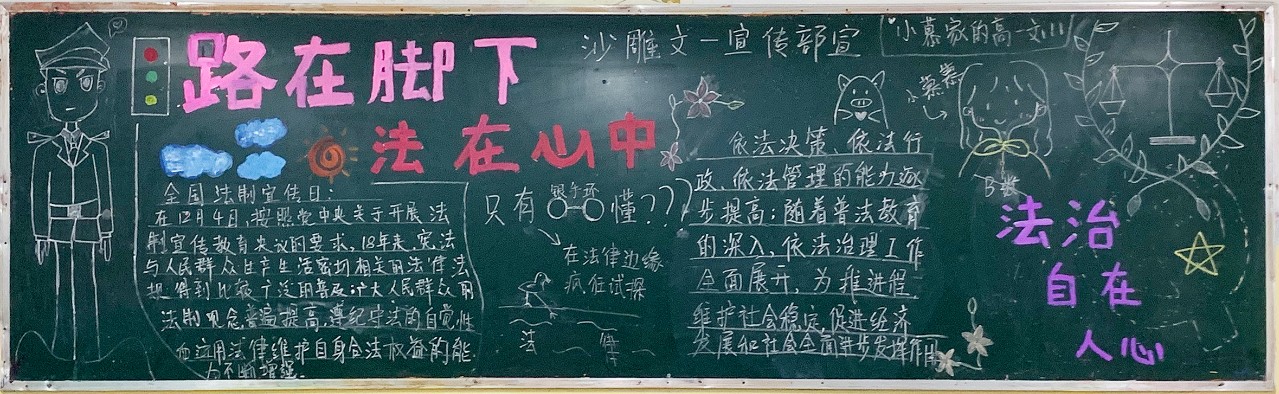 路在脚下
法在心中
沙雕文一宣传部宣
小慕家的高一文(1)
小慕慕
B数
全国法制宣传日:
在12月4日,按照党中央关于开展法
制宣传教育决议的要求,18年来,宪法
与人民群众生产生活密切相关的法律法
规得到比较广泛的普及,广大人民群众的
法制观念普遍提高,遵纪守法的自觉性
和运用法律维护自身合法权益的能
力不断增强.
只有 银手环 懂???
在法律边缘
疯狂试探
法 律
依法决策、依法行
政、依法管理的能力逐
步提高;随着普法教育
的深入,依法治理工作
全面展开,为推进程
维护社会稳定,促进经济
发展和社会全面进步发挥作用
法治
自在
人心